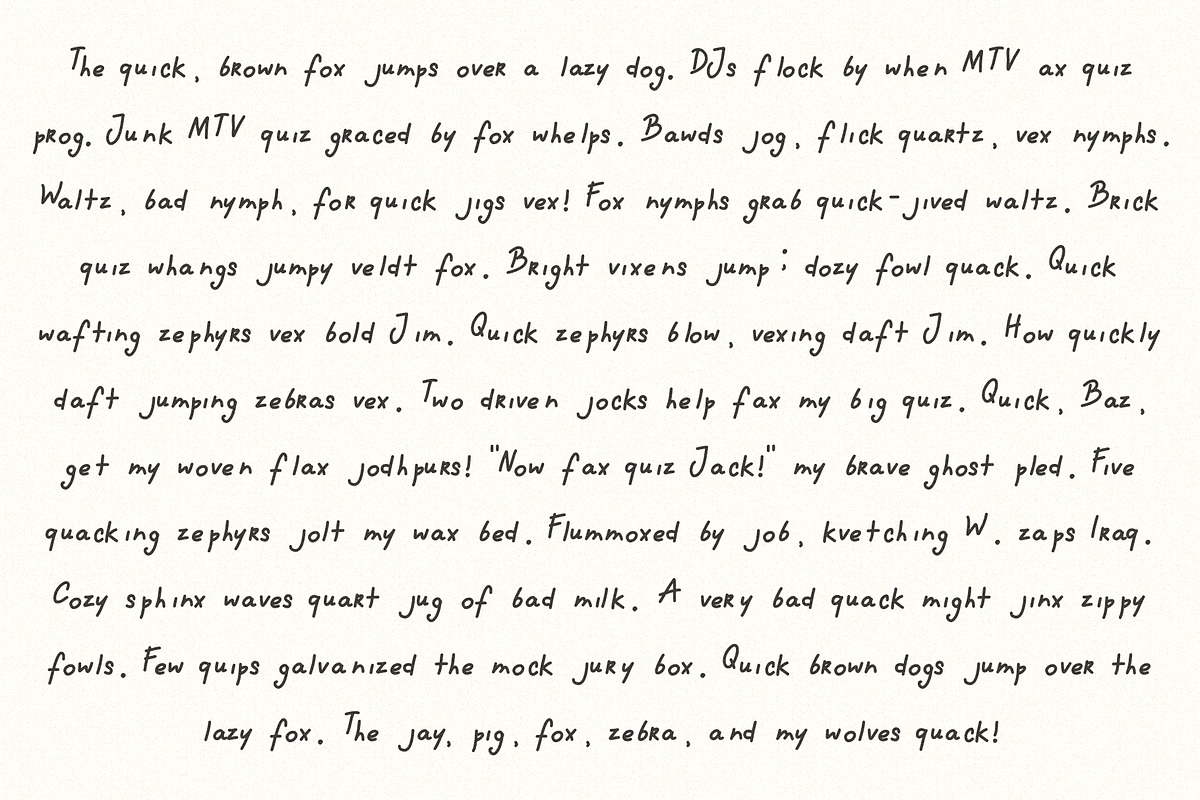 The quick, brown fox jumps over a lazy dog. DJs flock by when MTV ax quiz
prog. Junk MTV quiz graced by fox whelps. Bawds jog, flick quartz, vex nymphs.
Waltz, bad nymph, for quick jigs vex! Fox nymphs grab quick-jived waltz. Brick
quiz whangs jumpy veldt fox. Bright vixens jump; dozy fowl quack. Quick
wafting zephyrs vex bold Jim. Quick zephyrs blow, vexing daft Jim. How quickly
daft jumping zebras vex. Two driven jocks help fax my big quiz. Quick, Baz,
get my woven flax jodhpurs! "Now fax quiz Jack!" my brave ghost pled. Five
quacking zephyrs jolt my wax bed. Flummoxed by job, kvetching W. zaps Iraq.
Cozy sphinx waves quart jug of bad milk. A very bad quack might jinx zippy
fowls. Few quips galvanized the mock jury box. Quick brown dogs jump over the
lazy fox. The jay, pig, fox, zebra, and my wolves quack!